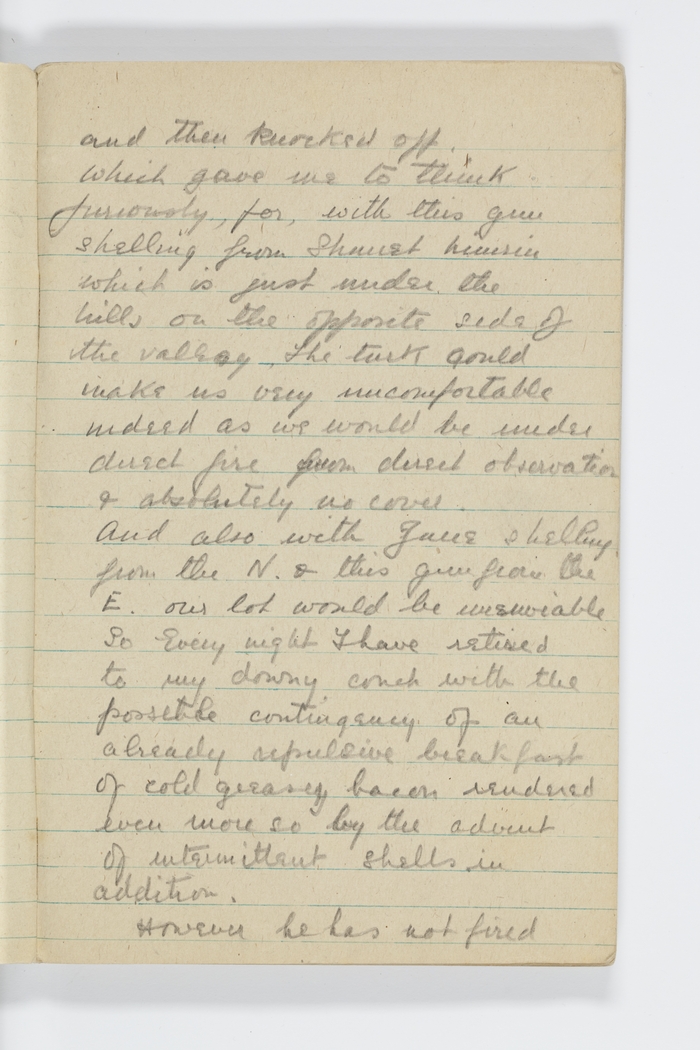 and then knocked off.
which gave me to think
furiously, for, with this gun
shelling from Shunet Nimrin
which is just under the
hills on the opposite side of
the valley, the turk could
make us very uncomfortable
indeed as we would be under
direct fire from direct observation
& absolutely no cover.
And also with Jane shelling
from the N. & this gun from the
E. our lot would be unenviable
So Every night I have retired
to my downy couch with the
possible contingency of an
already repulsive breakfast
of cold greasey bacon rendered
even more so by the advent
of intermittent shells in
addition.
However he has not fired